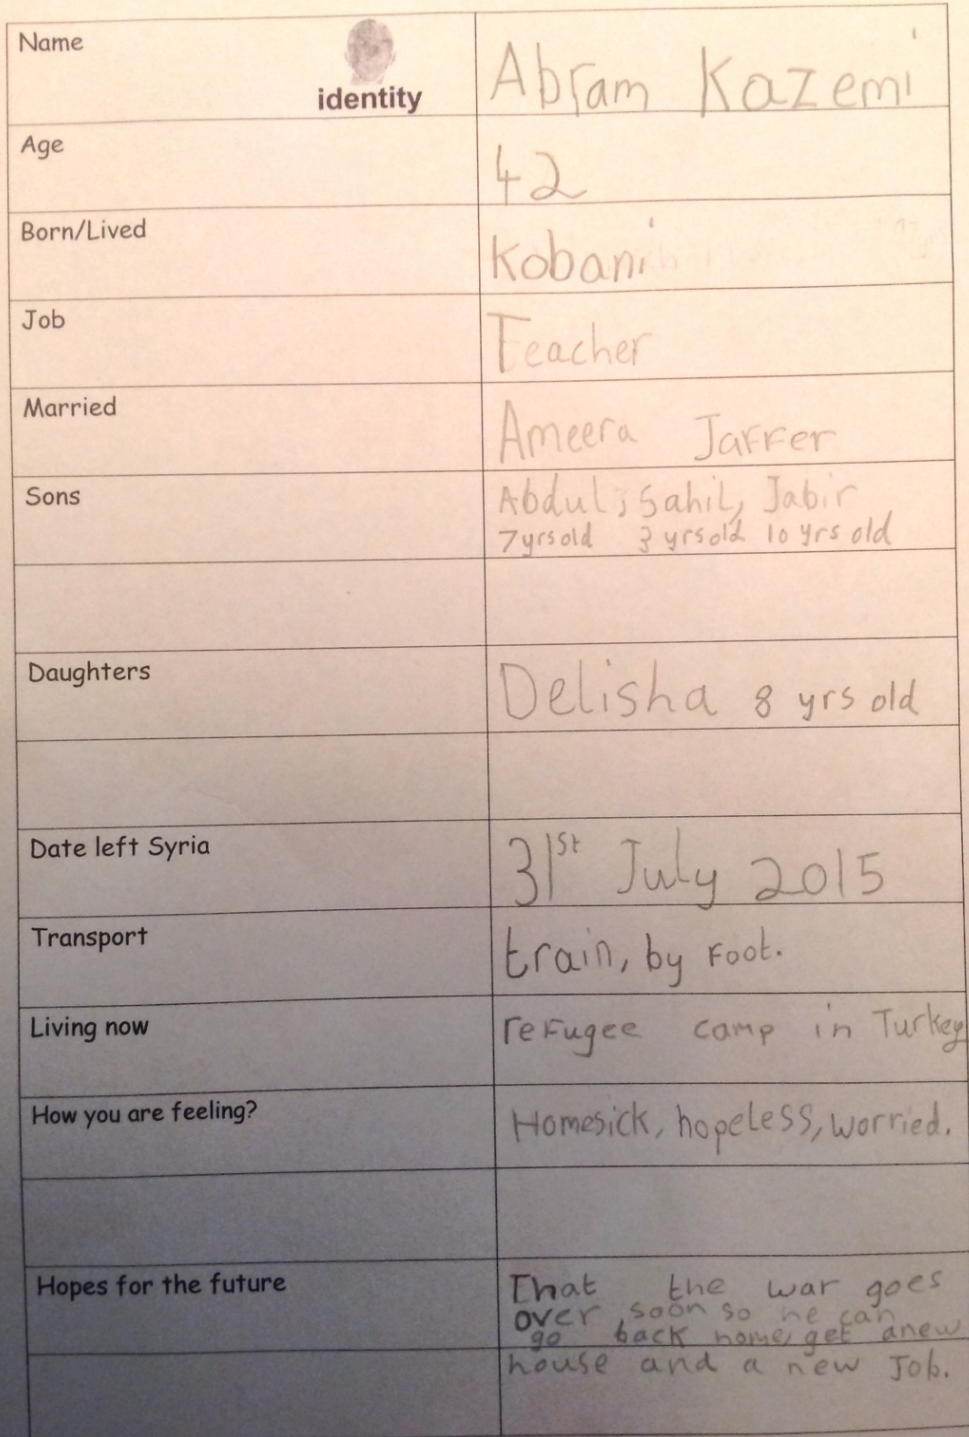 Name
identity
Abram Kazemi
Age
42
Born/Lived
Kobani
Job
Teacher
Married
Ameera Jaffer
Sons
Abdul, Sahil, Jabir
7yrs old 3 yrs old 10 yrs old
Daughters
Delisha 8 yrs old
Date left Syria
31st July 2015
Transport
train, by Foot.
Living now
reFugee camp in Turkey
How you are feeling?
Homesick, hopeless, worried.
Hopes for the future
That the war goes
over soon so he can
go back home, get anew
house and a new Job.